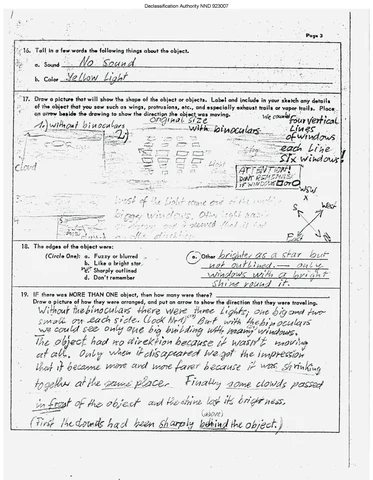 Declassification Authority NND 923007
Page 3
16. Tell in a few words the following things about the object.
a. Sound No Sound
b. Color Yellow Light
17. Draw a picture that will show the shape of the object or objects. Label and include in your sketch any details
of the object that you saw such as wings, protrusions, etc., and especially exhaust trails or vapor trails. Place
an arrow beside the drawing to show the direction the object was moving.
original size
1.) without binoculars
2.) with binoculars
we counted
four vertical
lines
of windows
each line
six windows!
cloud
ATTENTION!
DON'T REMEMBER
IF WINDOWS
WSW
X
S
West
East
most of the Light come out of the
windows.
18. The edges of the object were:
(Circle One): a. Fuzzy or blurred
b. Like a bright star
c. Sharply outlined
d. Don't remember
e. Other brighter as a star but
not outlined. — only
windows with a bright
shine round it.
19. IF there was MORE THAN ONE object, then how many were there?
Draw a picture of how they were arranged, and put an arrow to show the direction that they were traveling.
Without the binoculars there were three Lights; one big and two
small on each side. (Look Nr 17) But with the binoculars
we could see only one big building with many windows.
The object had no direktion because it wasn't moving
at all. Only when it disapeared we got the impression
that it became more and more farer because it was shrinking
together at the same place. Finally some clouds passed
in front of the object and the shine lost its brightness.
(above)
(First the clouds had been sharply behind the object.)